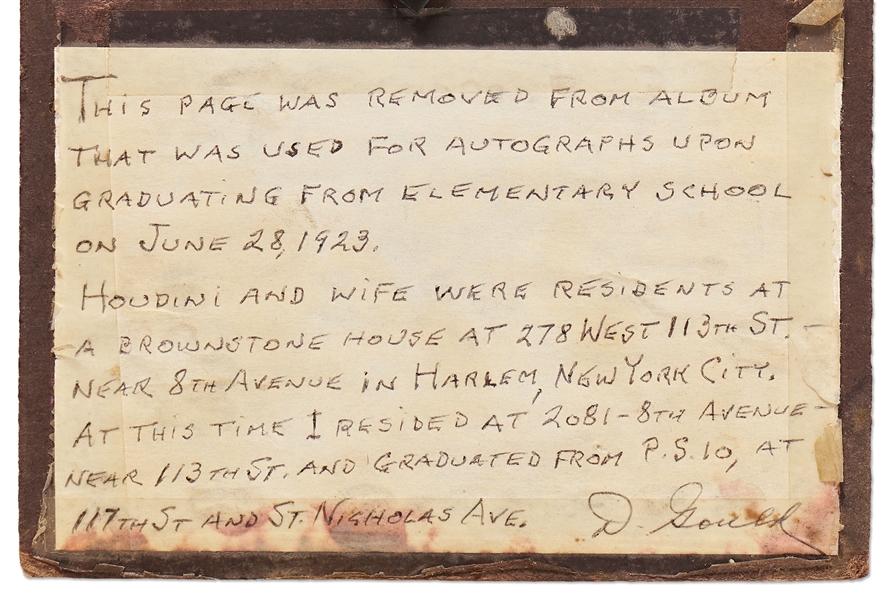 THIS PAGE WAS REMOVED FROM ALBUM
THAT WAS USED FOR AUTOGRAPHS UPON
GRADUATING FROM ELEMENTARY SCHOOL
ON JUNE 28, 1923.
HOUDINI AND WIFE WERE RESIDENTS AT
A BROWNSTONE HOUSE AT 278 WEST 113TH ST. -
NEAR 8TH AVENUE IN HARLEM, NEW YORK CITY.
AT THIS TIME I RESIDED AT 2081-8TH AVENUE -
NEAR 113TH ST. AND GRADUATED FROM P.S. 10, AT
117TH ST AND ST. NICHOLAS AVE. D. Gould